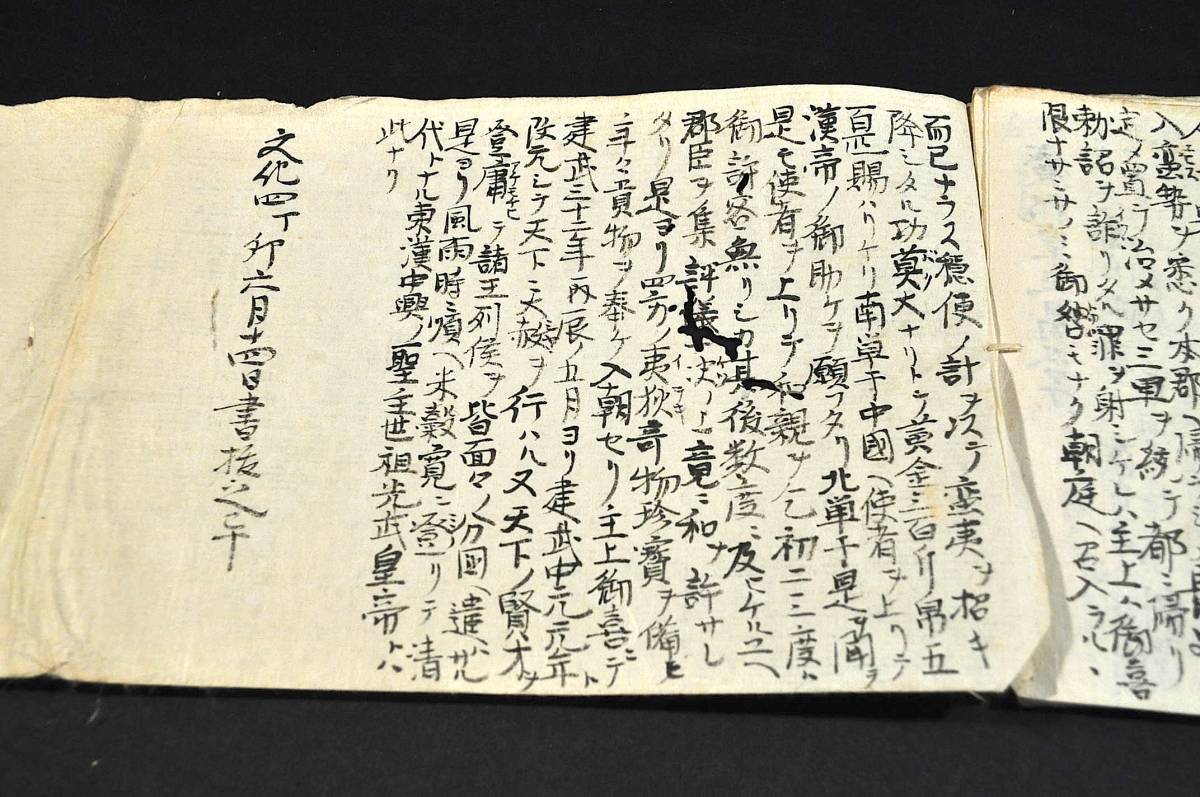 入蛮勢ヲ悉ク本郡ヘ
定メ置テ治メサセ三軍ヲ統シテ都ニ帰リ
勅詔ヲ詐リタル罪ヲ謝シケレハ主上ハ御喜
限ナサミサノミ御咎モナク朝庭ヘ召入ラル
而已ナラス穏便ノ計ヲ以テ蛮夷ヲ招キ
降シタル功莫大ナリトテ黄金三百斤帛五
百疋賜ハリケリ南単于中國ヘ使者ヲ上リテ
漢帝ノ御助ケヲ願フタリ北単于是ヲ聞テ
是モ使者ヲ上リテ和親ヲ乞初二三度ハ
御許容無リシカ其後数度ニ及ヒケルユヘ
郡臣ヲ集評議決シ竟ニ和ヲ許サレ
タリ是ヨリ四方ノ夷狄奇物珍寶ヲ備ヒ
年々貢物ヲ奉ケ入朝セリ主上御喜ニテ
建武三十二年丙辰ノ五月ヨリ建武中元元年ト
改元シテ天下ニ大赦ヲ行ハル又天下ノ賢才ヲ
登庸ヒテ諸王列侯ヲ皆面々ノ分國ヘ遣ハサル
是ヨリ風雨時ニ順ヘ米穀寛ニ登リテ清
代トナル東漢中興ノ聖主世祖光武皇帝トハ
此ナリ
文化四丁卯六月十四日書